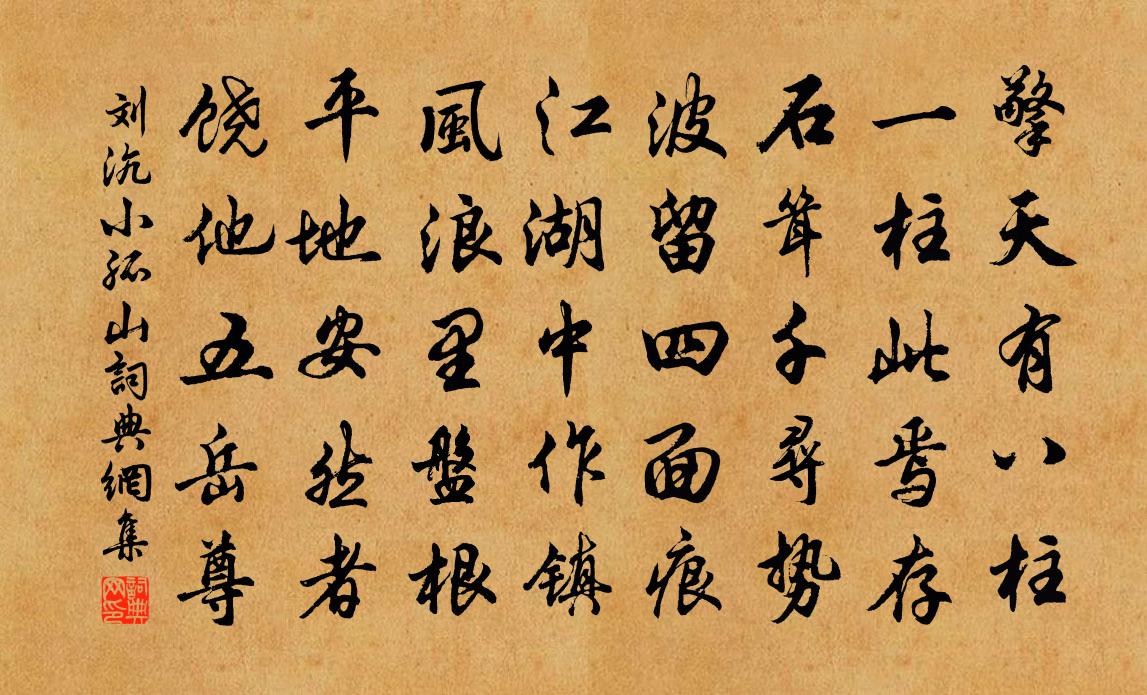 擎天有八柱
一柱此焉存
石耸千尋势
波留四面痕
江湖中作镇
風浪里盤根
平地安然者
饶他五岳尊
刘沆小孤山詞典網集
詞典网印